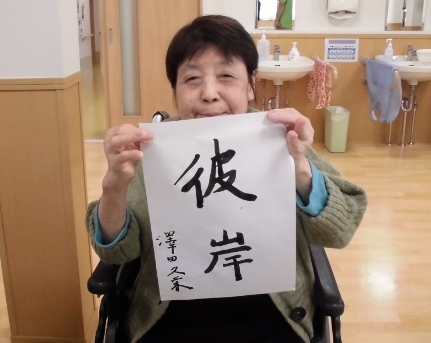 彼岸
澤田久栄